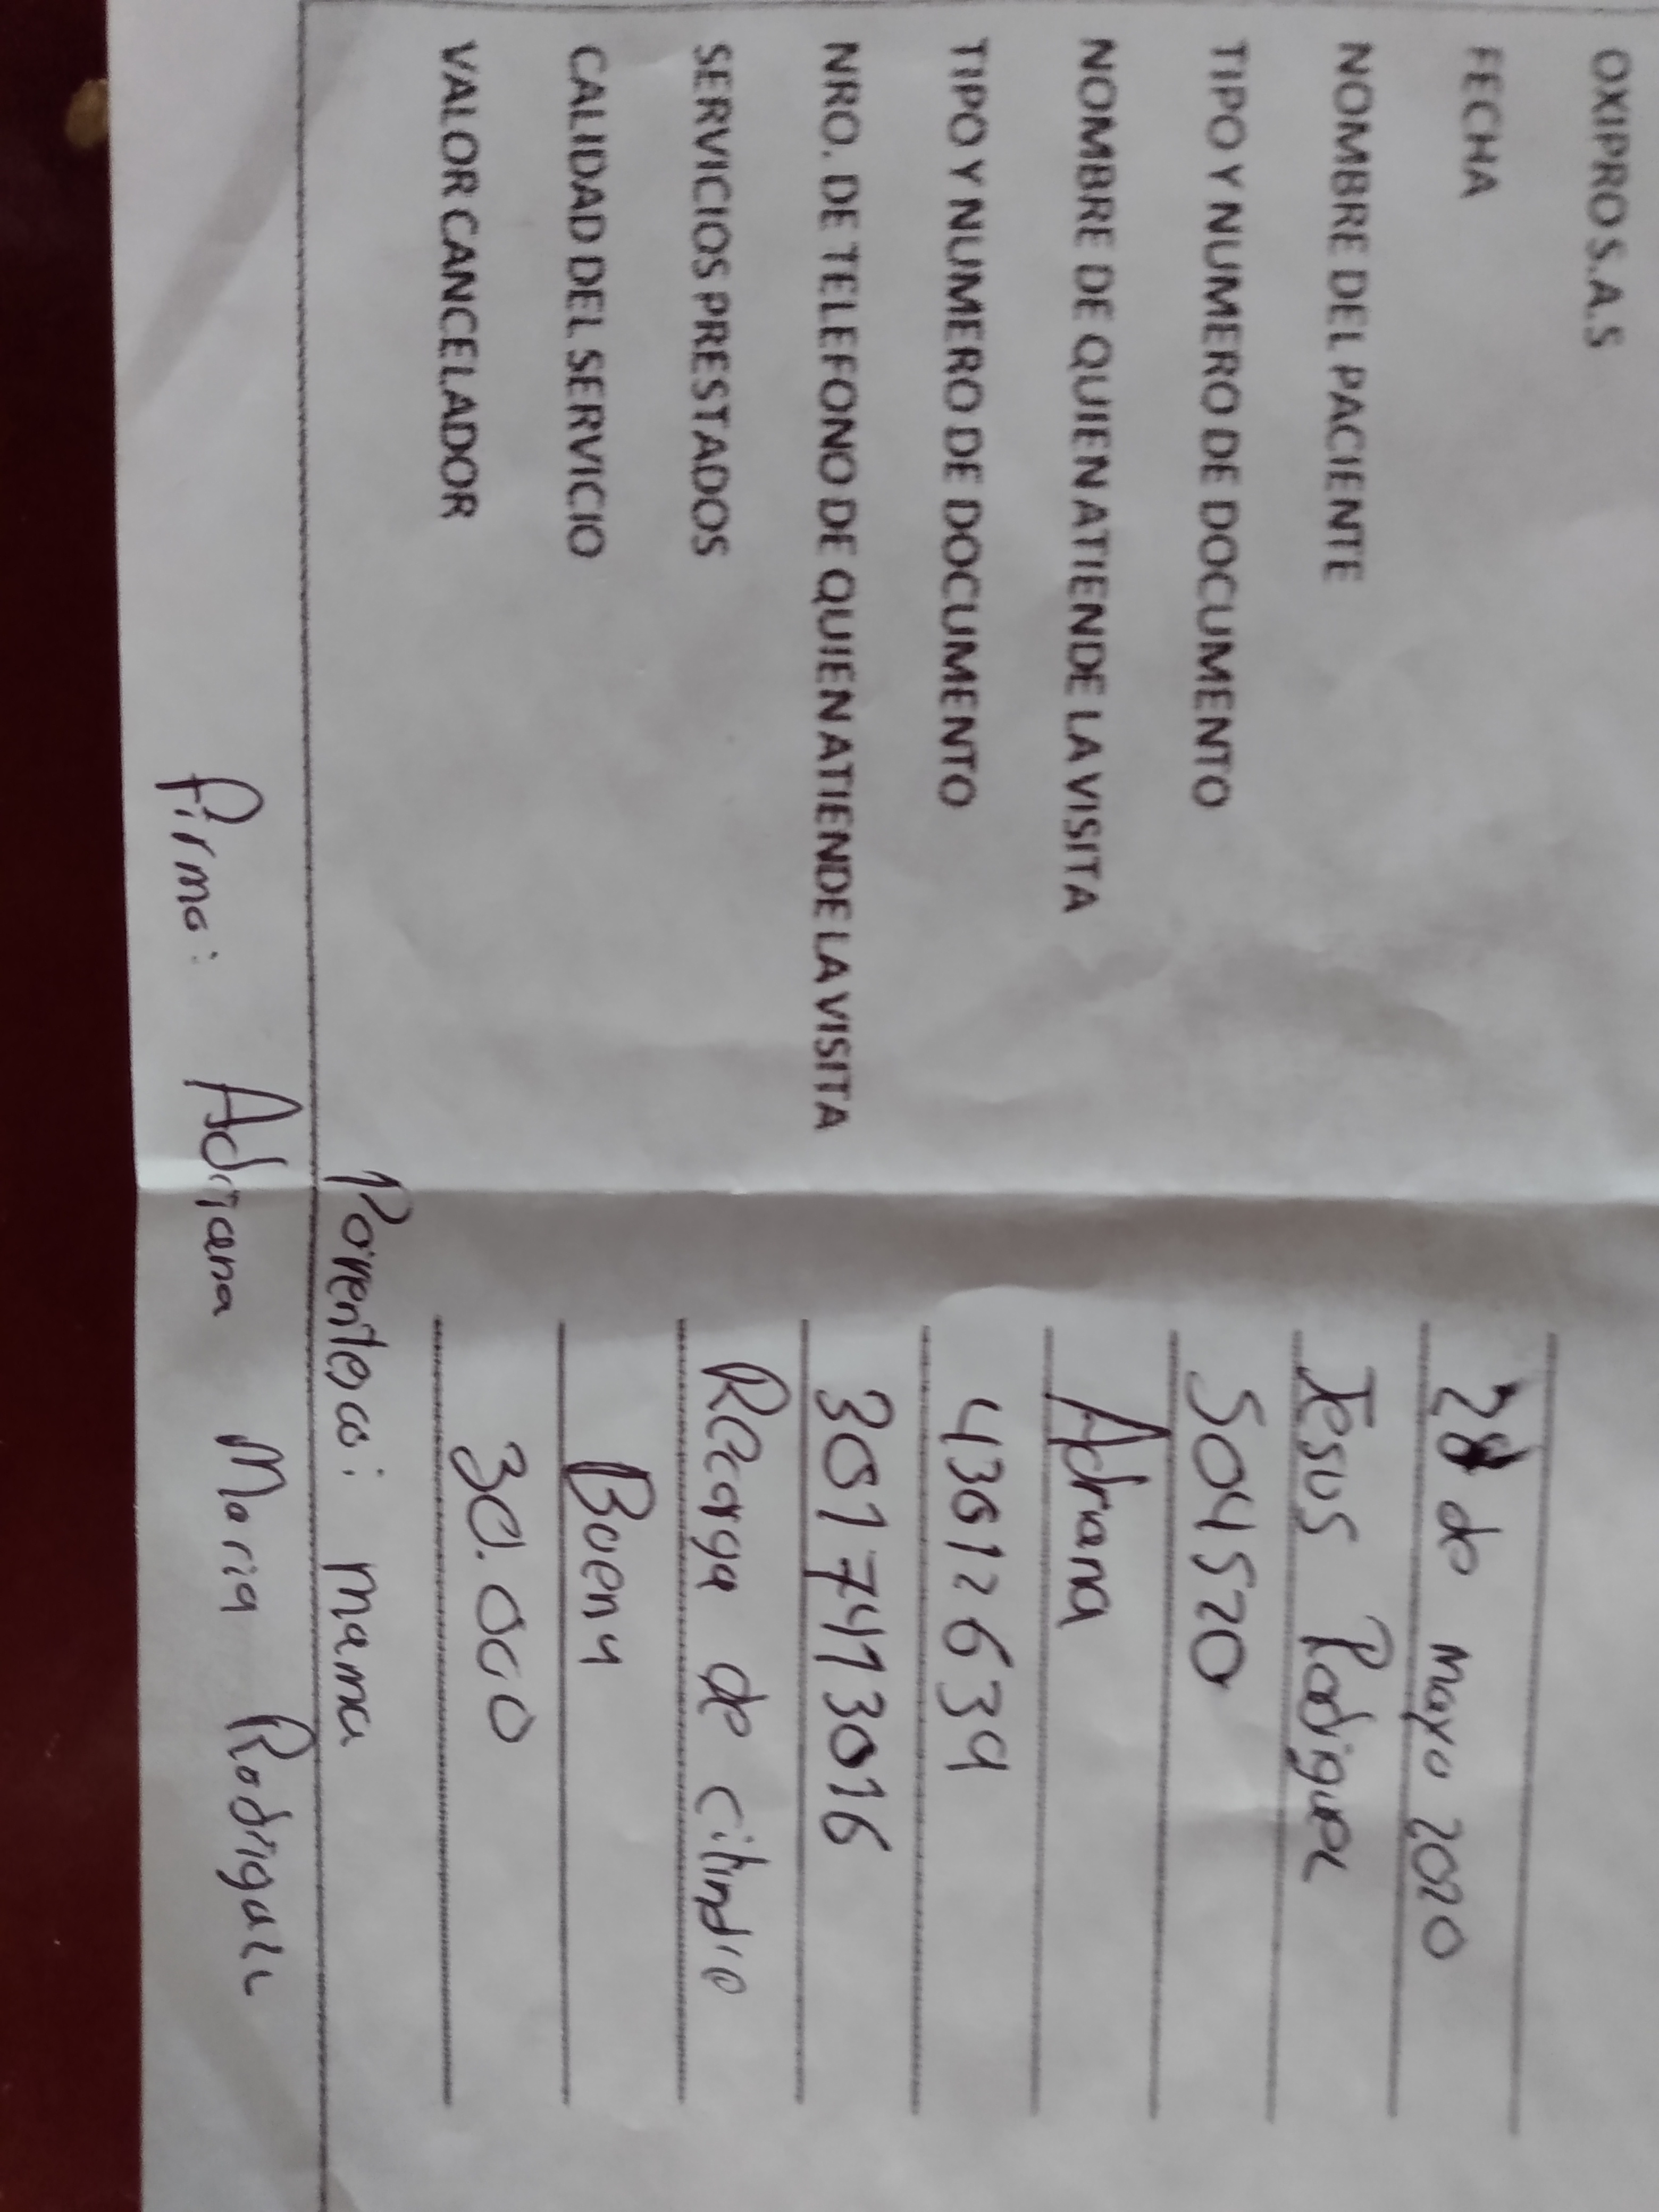 OXIPRO S.A.S
FECHA 28 de mayo 2020
NOMBRE DEL PACIENTE Jesus Rodriguez
TIPO Y NUMERO DE DOCUMENTO 504520
NOMBRE DE QUIEN ATIENDE LA VISITA Adriana
TIPO Y NUMERO DE DOCUMENTO 43612639
NRO. DE TELEFONO DE QUIEN ATIENDE LA VISITA 3017413016
SERVICIOS PRESTADOS Recarga de cilindro
CALIDAD DEL SERVICIO Buena
VALOR CANCELADOR 30.000
Parentesco: mama
Firma: Adriana Maria Rodrigez